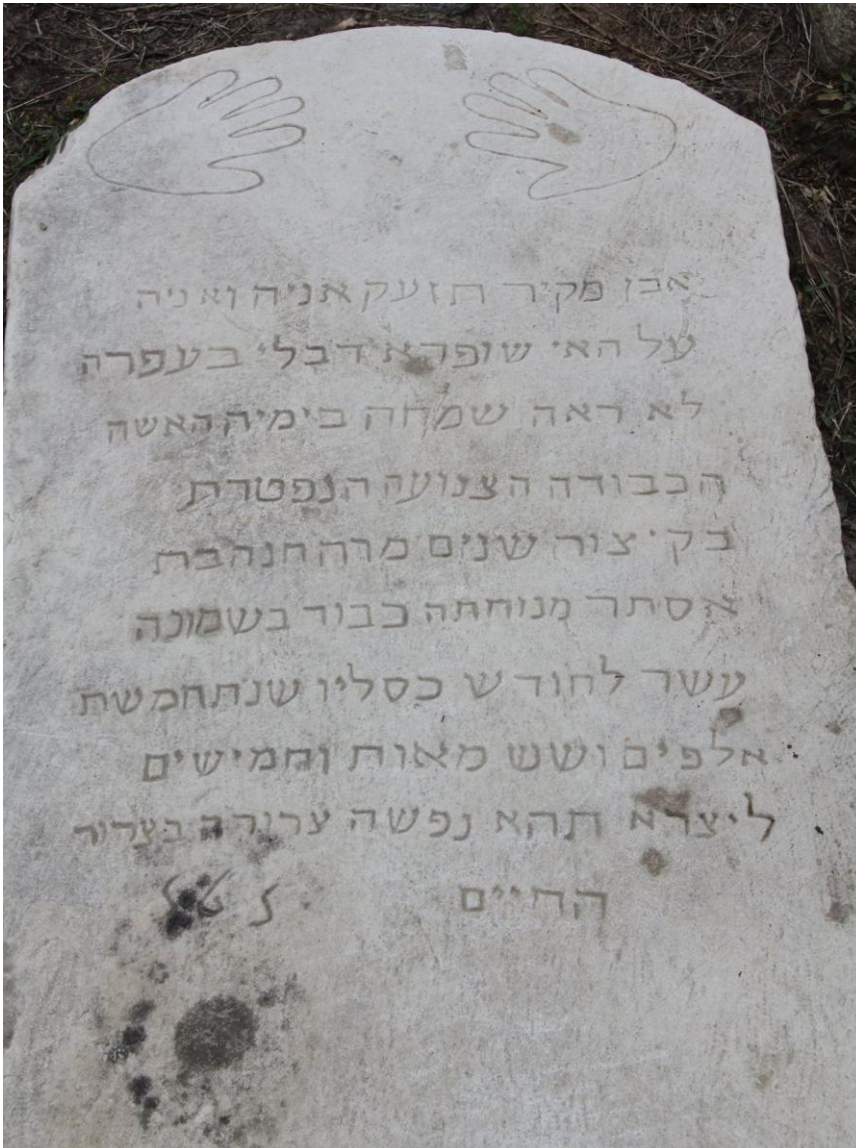 אבן מקיר תזעק אניה ואניה
על האי שופרא דבלי בעפרה
לא ראה שמחה בימיה האשה
הכבודה הצנועה הנפטרת
בק׳ צור שנים מרה חנה בת
אסתר מנוחתה כבוד בשמונה
עשר לחודש כסליו שנת חמשת
אלפים ושש מאות וחמישים
ליצרא תהא נפשה צרורה בצרור
החיים